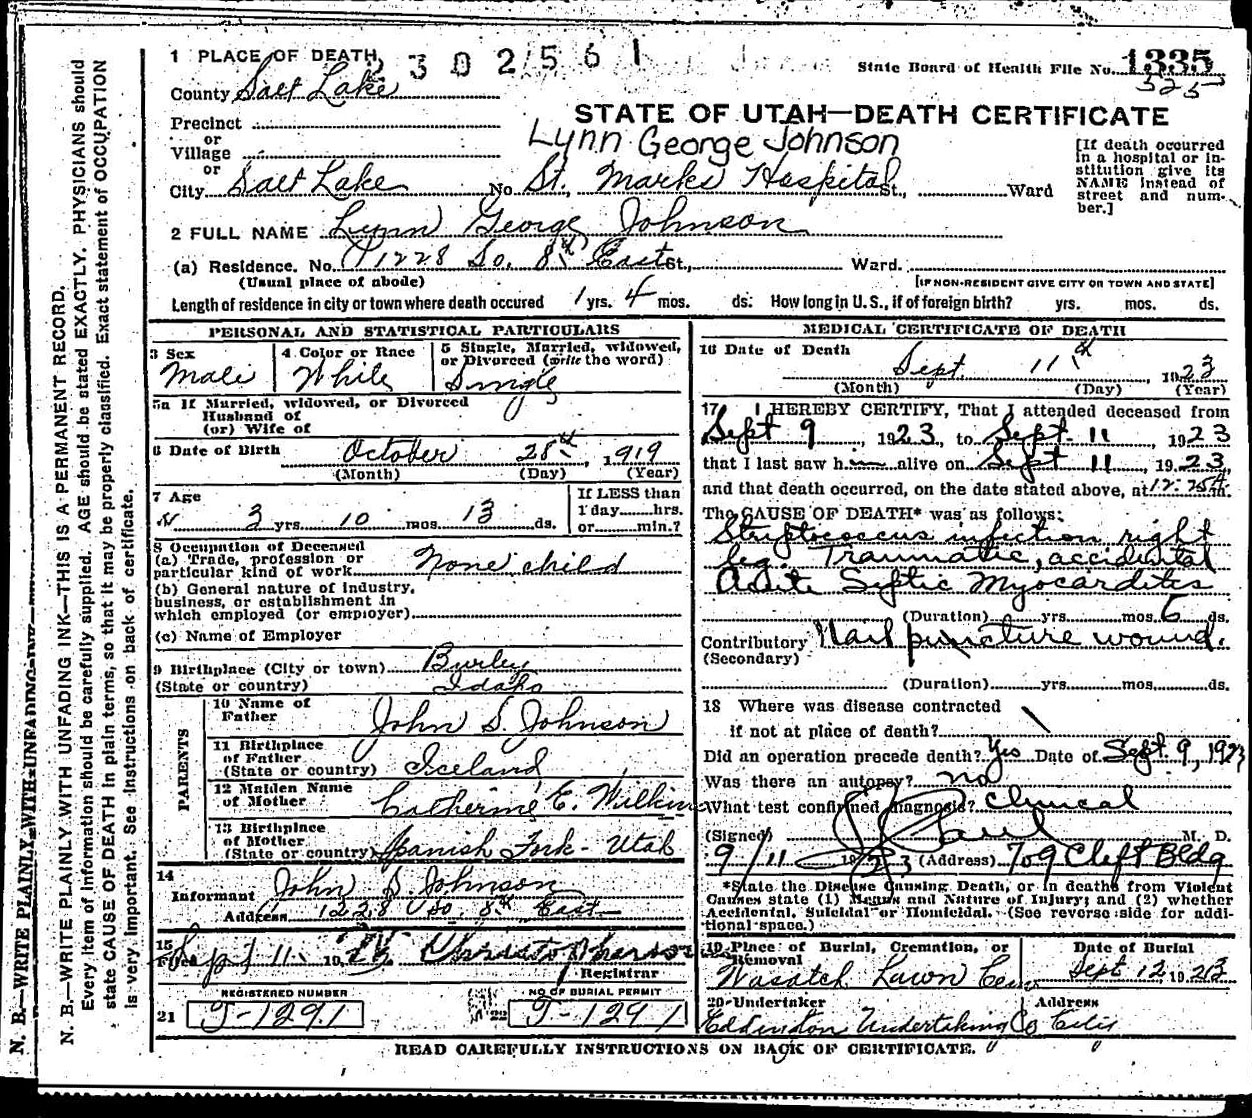 1 PLACE OF DEATH
2302561
State Board of Health File No. 1335
525
County Salt Lake
STATE OF UTAH—DEATH CERTIFICATE
Precinct
or
Lynn George Johnson
Village
or
City Salt Lake No. St. Marks Hospital St., Ward
[If death occurred in a hospital or institution give its NAME instead of street and number.]
2 FULL NAME Lynn George Johnson
(a) Residence. No. 1228 So. 8th East St., Ward.
(Usual place of abode) [IF NON-RESIDENT GIVE CITY OR TOWN AND STATE]
Length of residence in city or town where death occured 1 yrs. 4 mos. ds. How long in U. S., if of foreign birth? yrs. mos. ds.
PERSONAL AND STATISTICAL PARTICULARS
3 Sex
Male
4 Color or Race
White
5 Single, Married, widowed, or Divorced (write the word)
Single
5a If Married, widowed, or Divorced
Husband of
(or) Wife of
6 Date of Birth October 28th, 1919
(Month) (Day) (Year)
7 Age
3 yrs. 10 mos. 13 ds.
If LESS than
1 day hrs.
or min.?
8 Occupation of Deceased
(a) Trade, profession or
particular kind of work None child
(b) General nature of industry,
business, or establishment in
which employed (or employer)
(c) Name of Employer
9 Birthplace (City or town) Burley
(State or country) Idaho
PARENTS
10 Name of
Father John S. Johnson
11 Birthplace
of Father
(State or country) Iceland
12 Maiden Name
of Mother Catherine E. Wilkins
13 Birthplace
of Mother
(State or country) Spanish Fork - Utah
14
Informant John S. Johnson
Address 1228 So. 8th East
15
Filed Sept 11 19
Registrar
REGISTERED NUMBER
21 J-1291
NO OF BURIAL PERMIT
22 J-1291
MEDICAL CERTIFICATE OF DEATH
16 Date of Death
Sept 11th, 1923
(Month) (Day) (Year)
17 I HEREBY CERTIFY, That I attended deceased from
Sept 9, 1923, to Sept. 11, 1923
that I last saw h alive on Sept 11, 1923,
and that death occurred, on the date stated above, at m.
The CAUSE OF DEATH* was as follows:
Streptococcus infection right
leg. Traumatic, accidental
Acute Septic Myocarditis
(Duration) yrs. mos. 5 ds.
Contributory Nail puncture wound.
(Secondary)
(Duration) yrs. mos. ds.
18 Where was disease contracted
if not at place of death?
Did an operation precede death? Yes Date of Sept. 9, 1923
Was there an autopsy? no
What test confirmed diagnosis? Clinical
(Signed) Paul M. D.
9/11 1923 (Address) 709 Clift Bldg
*State the Disease Causing Death, or in deaths from Violent
Causes state (1) Means and Nature of Injury; and (2) whether
Accidental, Suicidal or Homicidal. (See reverse side for additional space.)
19 Place of Burial, Cremation, or
Removal
Wasatch Lawn Cem
Date of Burial
Sept 12, 1923
20 Undertaker
Eddington Undertaking Co
Address
City
READ CAREFULLY INSTRUCTIONS ON BACK OF CERTIFICATE.
N. B.—WRITE PLAINLY WITH UNFADING INK—
N. B.—WRITE PLAINLY WITH UNFADING INK—THIS IS A PERMANENT RECORD.
Every item of information should be carefully supplied. AGE should be stated EXACTLY. PHYSICIANS should
state CAUSE OF DEATH in plain terms, so that it may be properly classified. Exact statement of OCCUPATION
is very important. See instructions on back of certificate.